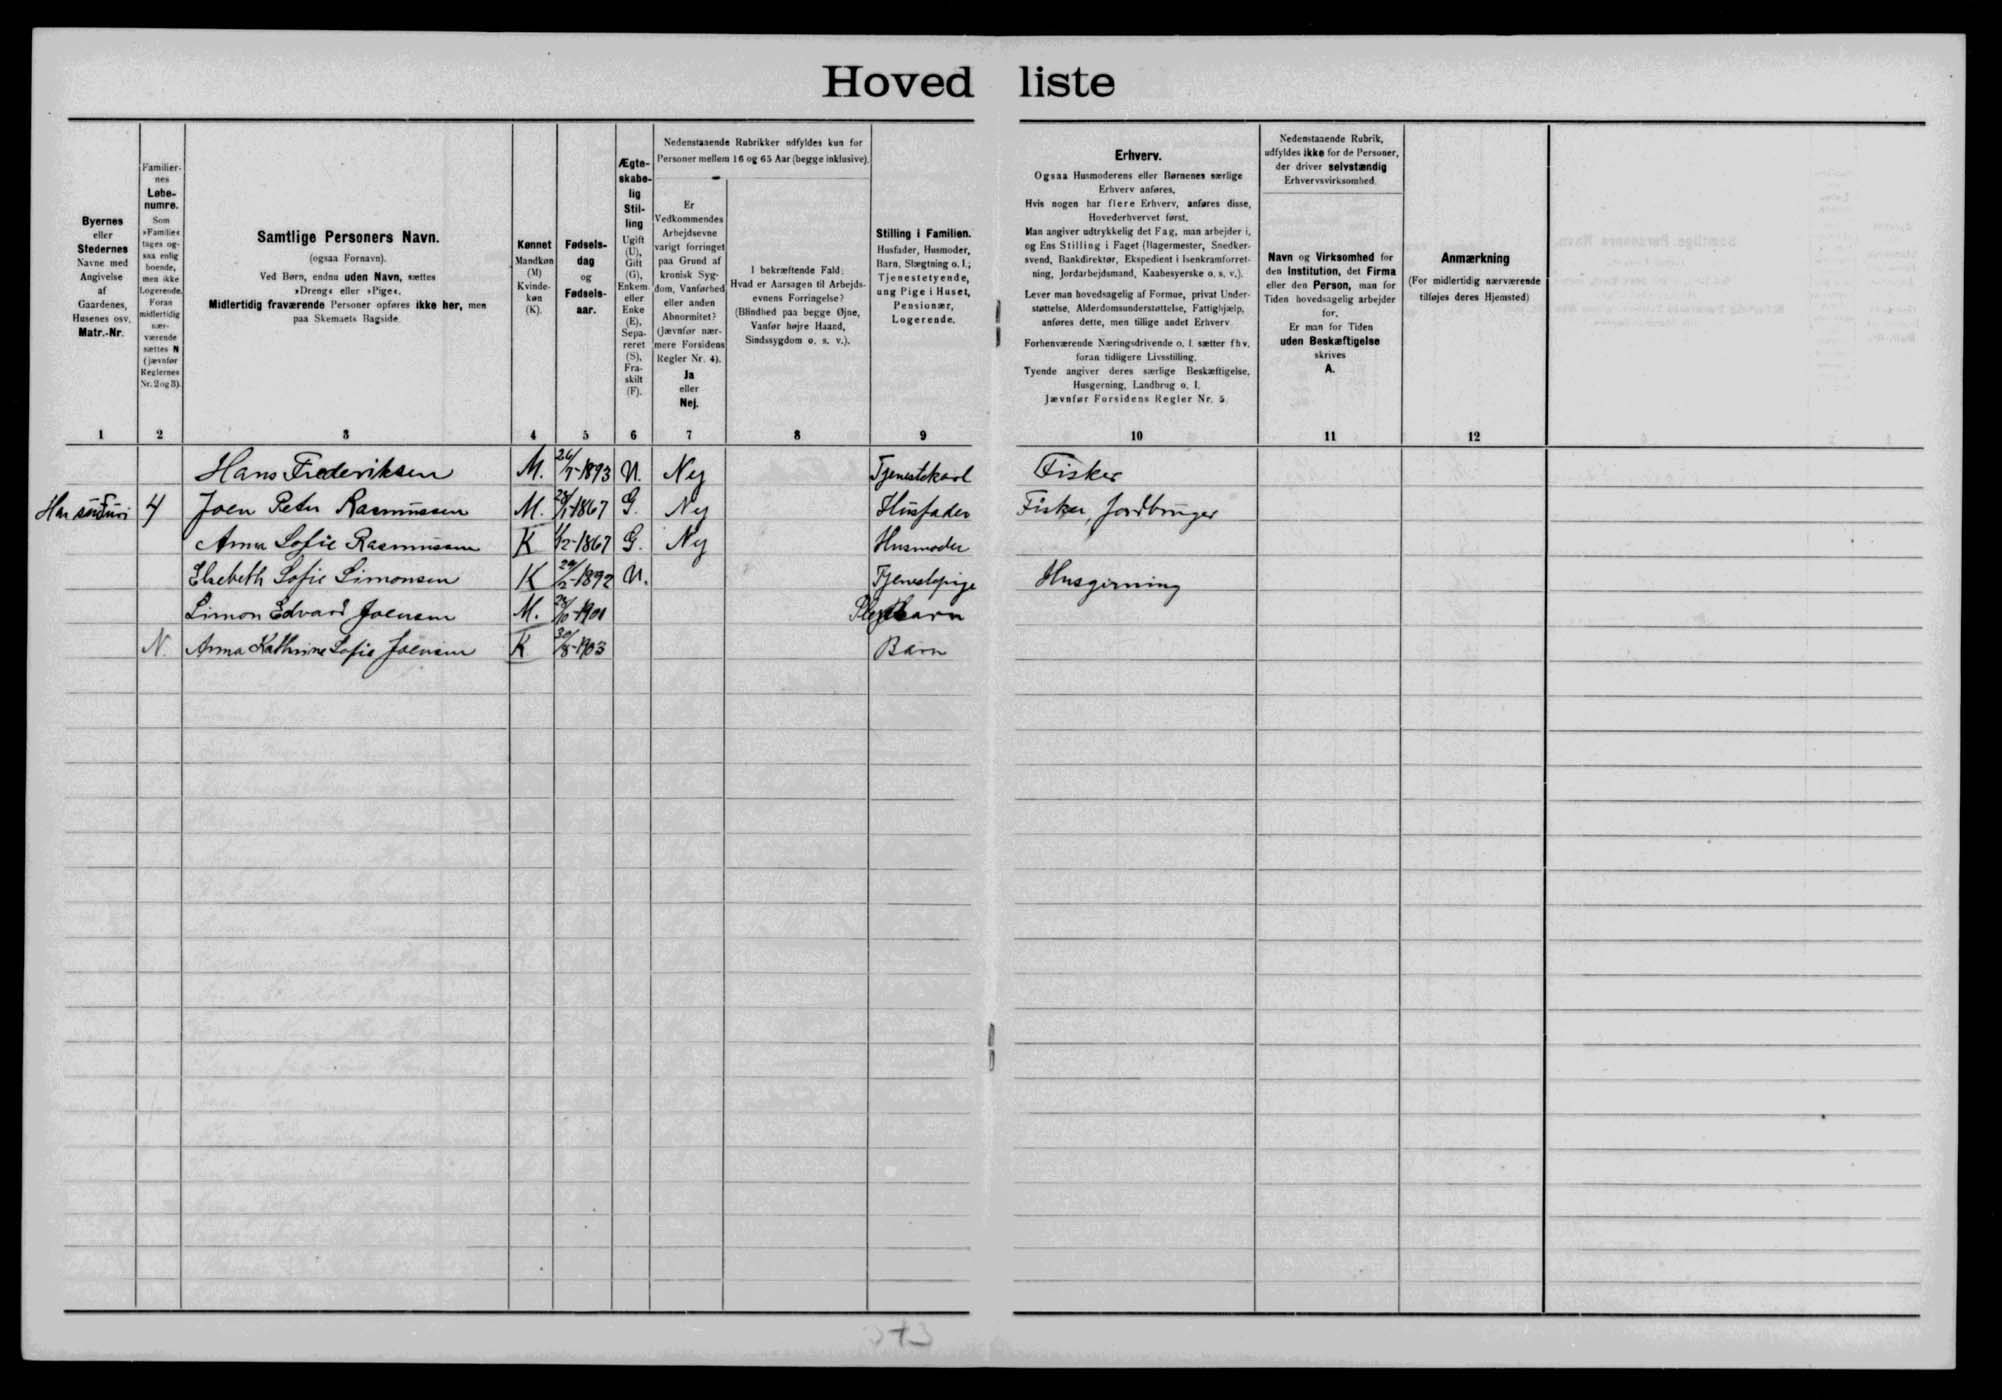 Hovedliste
Byernes
eller
Stedernes
Navne med
Angivelse
af
Gaardenes,
Husenes osv.
Matr.-Nr.
Familier-
nes
Løbe-
numre.
Som
»Familie«
tages og-
saa enlig
boende,
men ikke
Logerende.
Foran
midlertidig
nær-
værende
sættes N
(jævnfør
Reglernes
Nr. 2 og 3).
Samtlige Personers Navn.
(ogsaa Fornavn).
Ved Børn, endnu uden Navn, sættes
»Dreng« eller »Pige«.
Midlertidig fraværende Personer opføres ikke her, men
paa Skemaets Bagside.
Kønnet
Mandkøn
(M)
Kvinde-
køn
(K).
Fødsels-
dag
og
Fødsels-
aar.
Ægte-
skabe-
lig
Stil-
ling
Ugift
(U),
Gift
(G),
Enkem.
eller
Enke
(E),
Sepa-
reret
(S),
Fra-
skilt
(F).
Nedenstaaende Rubrikker udfyldes kun for
Personer mellem 16 og 65 Aar (begge inklusive).
Er
Vedkommendes
Arbejdsevne
varigt forringet
paa Grund af
kronisk Syg-
dom, Vanførhed
eller anden
Abnormitet?
(Jævnfør nær-
mere Forsidens
Regler Nr. 4).
Ja
eller
Nej.
I bekræftende Fald:
Hvad er Aarsagen til Arbejds-
evnens Forringelse?
(Blindhed paa begge Øjne,
Vanfør højre Haand,
Sindssygdom o. s. v.).
Stilling i Familien.
Husfader, Husmoder,
Barn, Slægtning o. l.;
Tjenestetyende,
ung Pige i Huset,
Pensionær,
Logerende.
Erhverv.
Ogsaa Husmoderens eller Børnenes særlige
Erhverv anføres.
Hvis nogen har flere Erhverv, anføres disse,
Hovederhvervet først.
Man angiver udtrykkelig det Fag, man arbejder i,
og Ens Stilling i Faget (Bagermester, Snedker-
svend, Bankdirektør, Ekspedient i Isenkramforret-
ning, Jordarbejdsmand, Kaabesyerske o. s. v.).
Lever man hovedsagelig af Formue, privat Under-
støttelse, Alderdomsunderstøttelse, Fattighjælp,
anføres dette, men tillige andet Erhverv
Forhenværende Næringsdrivende o. l. sætter fhv.
foran tidligere Livsstilling.
Tyende angiver deres særlige Beskæftigelse,
Husgerning, Landbrug o. l.
Jævnfør Forsidens Regler Nr. 5
Nedenstaaende Rubrik,
udfyldes ikke for de Personer,
der driver selvstændig
Erhvervsvirksomhed.
Navn og Virksomhed for
den Institution, det Firma
eller den Person, man for
Tiden hovedsagelig arbejder
for.
Er man for Tiden
uden Beskæftigelse
skrives
A.
Anmærkning
(For midlertidig nærværende
tilføjes deres Hjemsted)
1 2 3 4 5 6 7 8 9 10 11 12
Hans Frederiksen M. 26/7-1893 U. Nej Tjenestekarl Fisker
4 Joen Peter Rasmussen M. 1867 G. Nej Husfader Fisker, Jordbruger
Anna Sofie Rasmussen K 1867 G. Nej Husmoder
Elsebeth Sofie Simonsen K 1892 U. Tjenestepige Husgerning
Simon Edvard Joensen M. 1901 Plejebarn
N. Anna Kathrine Sofie Joensen K 30/8-1903 Barn